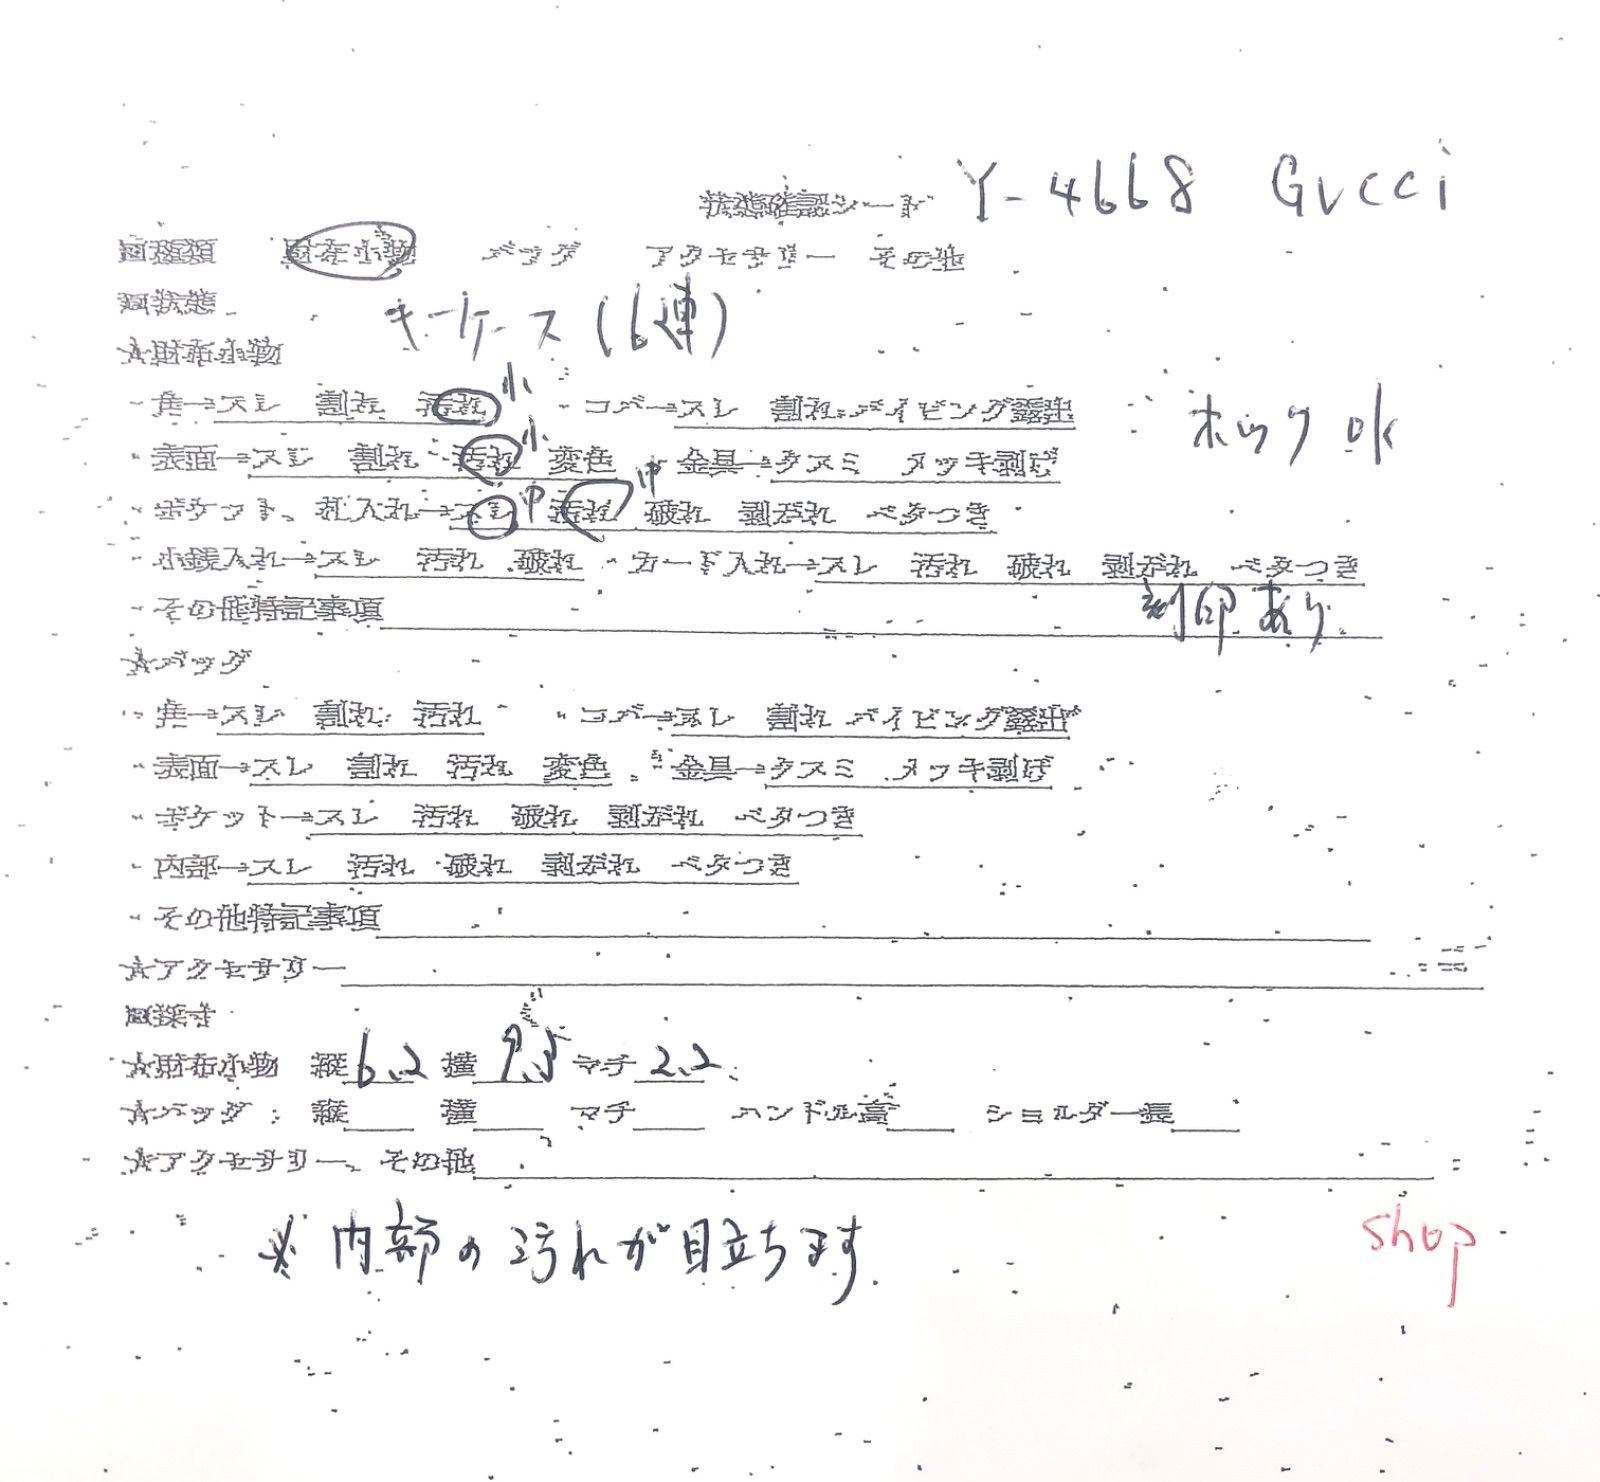 状態確認シート Y-4668 Gucci
□種類 財布小物 バッグ アクセサリー その他
□状態 キーケース(6連)
☆財布小物
・角→スレ 割れ 汚れ 小 ・コバ→スレ 割れ パイピング露出 ホック ok
・表面→スレ 割れ 汚れ 小 変色 ・金具→クスミ メッキ剥げ
・ポケット、札入れ→スレ 中 汚れ 中 破れ 剥がれ ベタつき
・小銭入れ→スレ 汚れ 破れ ・カード入れ→スレ 汚れ 破れ 剥がれ ベタつき
・その他特記事項 刻印あり
☆バッグ
・角→スレ 割れ 汚れ ・コバ→スレ 割れ パイピング露出
・表面→スレ 割れ 汚れ 変色 ・金具→クスミ メッキ剥げ
・ポケット→スレ 汚れ 破れ 剥がれ ベタつき
・内部→スレ 汚れ 破れ 剥がれ ベタつき
・その他特記事項
☆アクセサリー
□採寸
☆財布小物 縦6.2 横9.5 マチ2.2
☆バッグ:縦 横 マチ ハンドル高 ショルダー長
☆アクセサリー、その他
※内部の汚れが目立ちます
shop